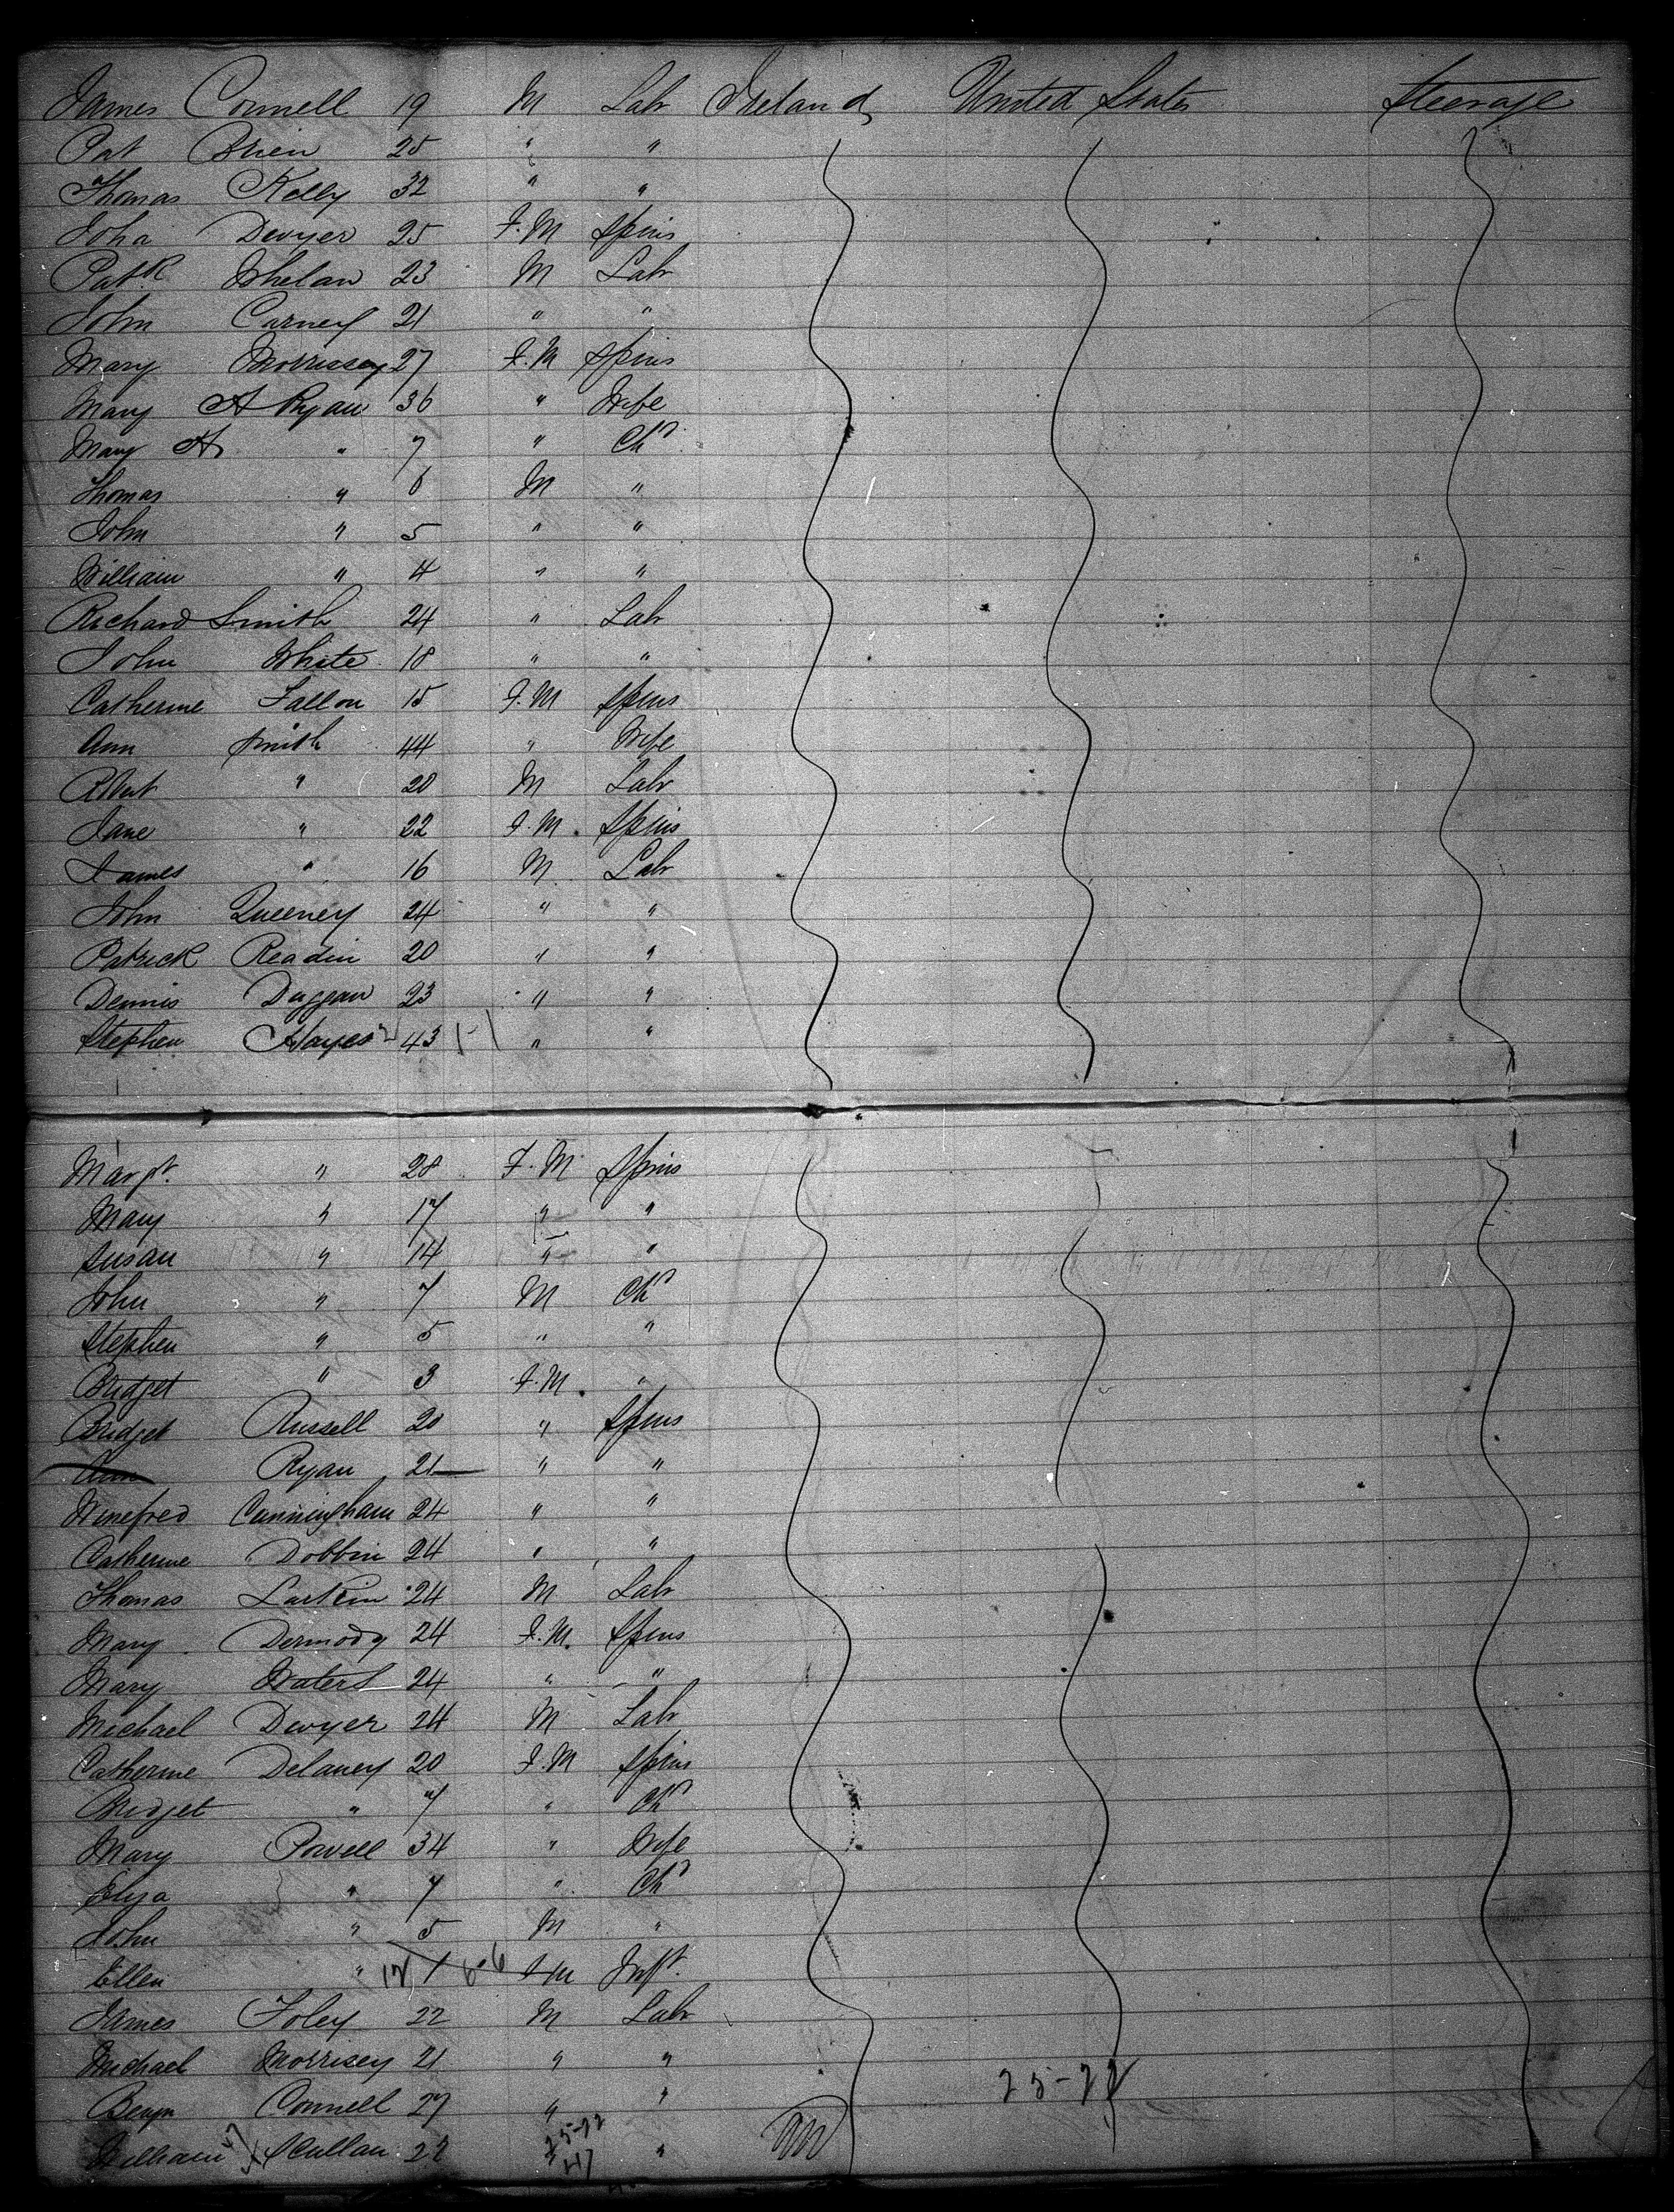 James Connell 19 M Labr Ireland United States Steerage
Pat Brien 25 " "
Thomas Kelly 32 " "
Joha Dwyer 25 F.M Spins
Patk Whelan 23 M Labr
John Carney 21 " "
Mary Morrissey 27 F.M Spins
Mary A Ryan 36 " Wife
Mary A " 7 " Chd
Thomas " 6 M "
John " 5 " "
William " 4 " "
Richard Smith 24 " Labr
John White 18 " "
Catherine Fallon 15 F.M Spins
Ann Smith 44 " Wife
Robert " 20 M Labr
Jane " 22 F.M. Spins
James " 16 M Labr
John Queeney 24 " "
Patrick Readin 20 " "
Dennis Duggan 23 " "
Stephen Hayes 43 " "
Margt. " 28 F.M Spins
Mary " 17 " "
Susan " 14 " "
John " 7 M Chd
Stephen " 5 " "
Bridget " 3 F.M. "
Bridget Russell 20 " Spins
Ann Ryan 21 " "
Winefred Cunningham 24 " "
Catherine Dobbin 24 " "
Thomas Larkin 24 M Labr
Mary Dermody 24 F.M. Spins
Mary Waters 24 " "
Michael Dwyer 24 M Labr
Catherine Delaney 20 F.M Spins
Bridget " 7 " Chd
Mary Powell 34 " Wife
Eliza " 7 " Chd
John " 5 M "
Ellen " 1 FM Inft.
James Foley 22 M Labr
Michael Morrisey 21 " "
25-22
Benjn Connell 27 " "
25-22
William Scullan 22 "
47